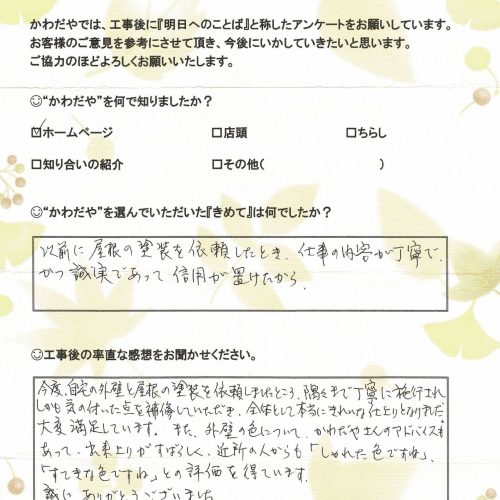 かわだやでは、工事後に『明日へのことば』と称したアンケートをお願いしています。
お客様のご意見を参考にさせて頂き、今後にいかしていきたいと思います。
ご協力のほどよろしくお願いいたします。
☺“かわだや”を何で知りましたか?
☑ホームページ □店頭 □ちらし
□知り合いの紹介 □その他( )
☺“かわだや”を選んでいただいた『きめて』は何でしたか?
以前に屋根の塗装を依頼したとき、仕事の内容が丁寧で、
かつ誠実であって信用が置けたから。
☺工事後の率直な感想をお聞かせください。
今度、自宅の外壁と屋根の塗装を依頼しましたところ、隅々まで丁寧に施行され
しかも気の付いた点を補修していただき、全体として本当にきれいな仕上りとなりました
大変満足しています。また、外壁の色について、かわだやさんのアドバイスも
あって、出来上りがすばらしく、近所の人からも「しゃれた色ですね」、
「すてきな色ですね」との評価を得ています。
誠にありがとうございました